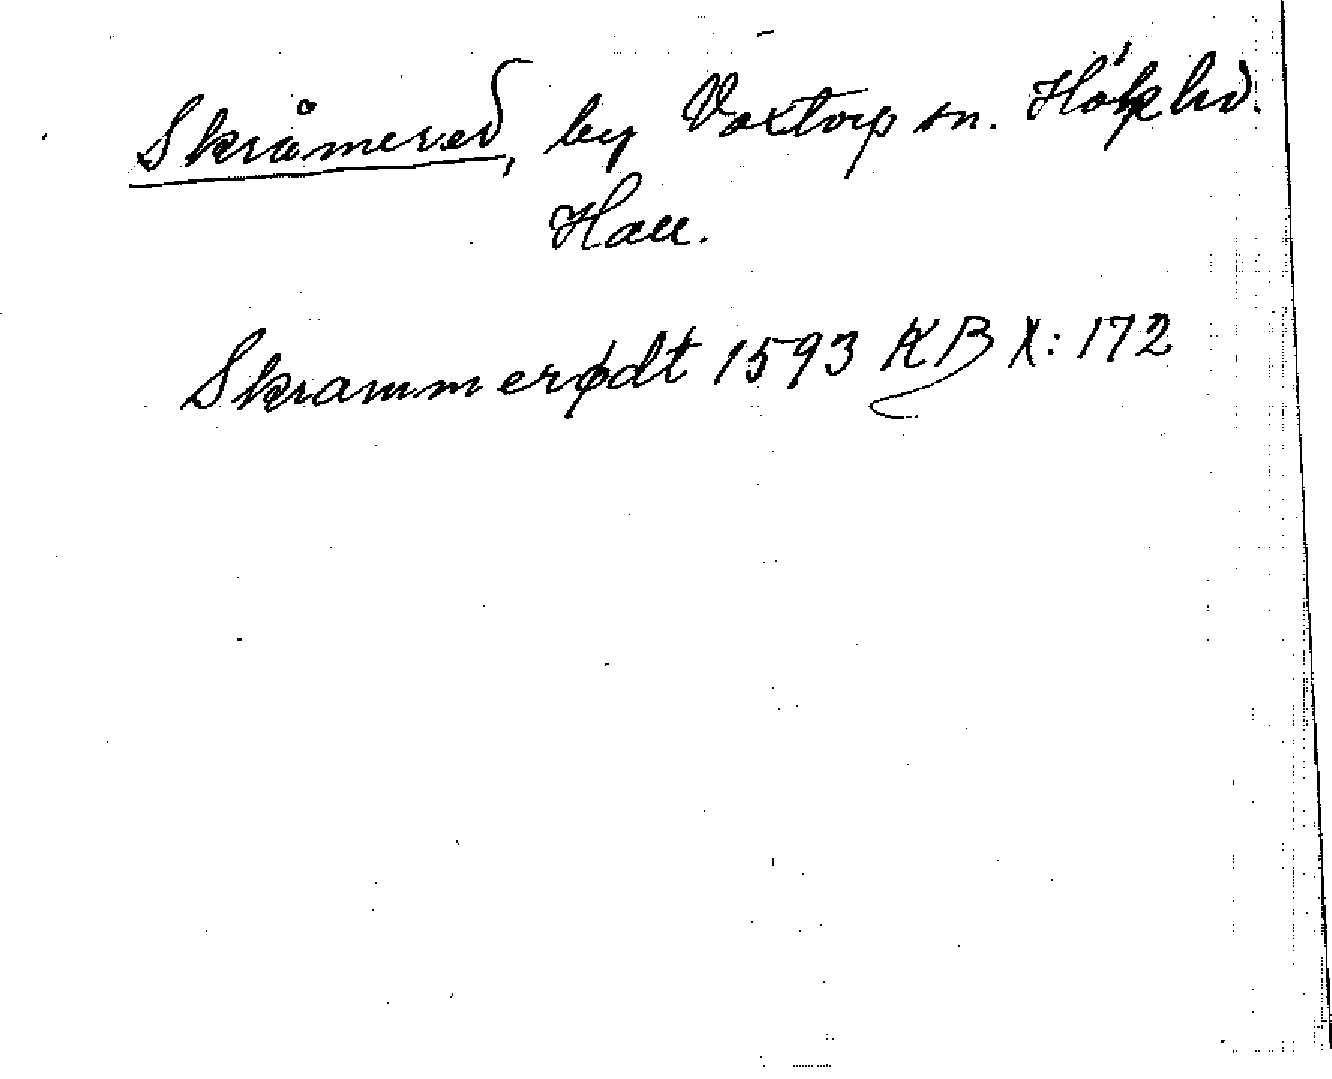 Skråmered, by Voxtorp sn. Hökhd.
Hall.
Skrammerødt 1593 KB X: 172